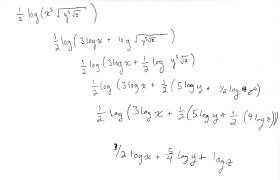 ½ log(x³ √(y⁵√z))
½ log(3logx + log √(y⁵√z))
½ log(3logx + ½ log y⁵√z)
½ log(3logx + ½(5logy + ½log z⁴)
½ log(3logx + ½(5logy + ½(4logz)))
3/2 logx + 5/4 logy + logz